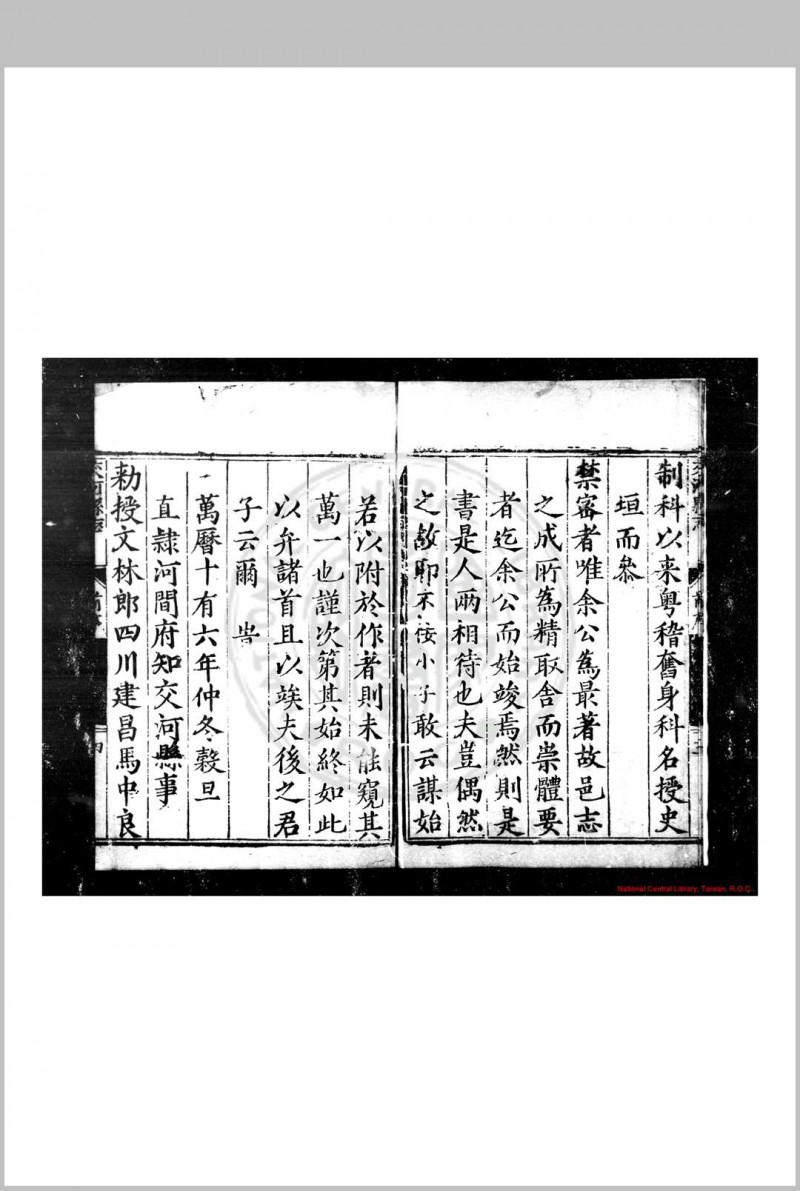 制科以来粤稽奮身科名授史
垣而叅
禁審者唯余公為最著故邑志
之成所為精取舍而崇體要
者迄余公而始竣焉然則是
書是人兩相待也夫豈偶然
之故耶不佞小子敢云謀始
若以附於作者則未能窺其
萬一也謹次第其始終如此
以弁諸首且以竢夫後之君
子云爾 旹
萬曆十有六年仲冬穀旦
直隷河間府知交河縣事
勑授文林郎四川建昌馬中良
交河縣志
National Central Library, Taiwan, R.O.C.